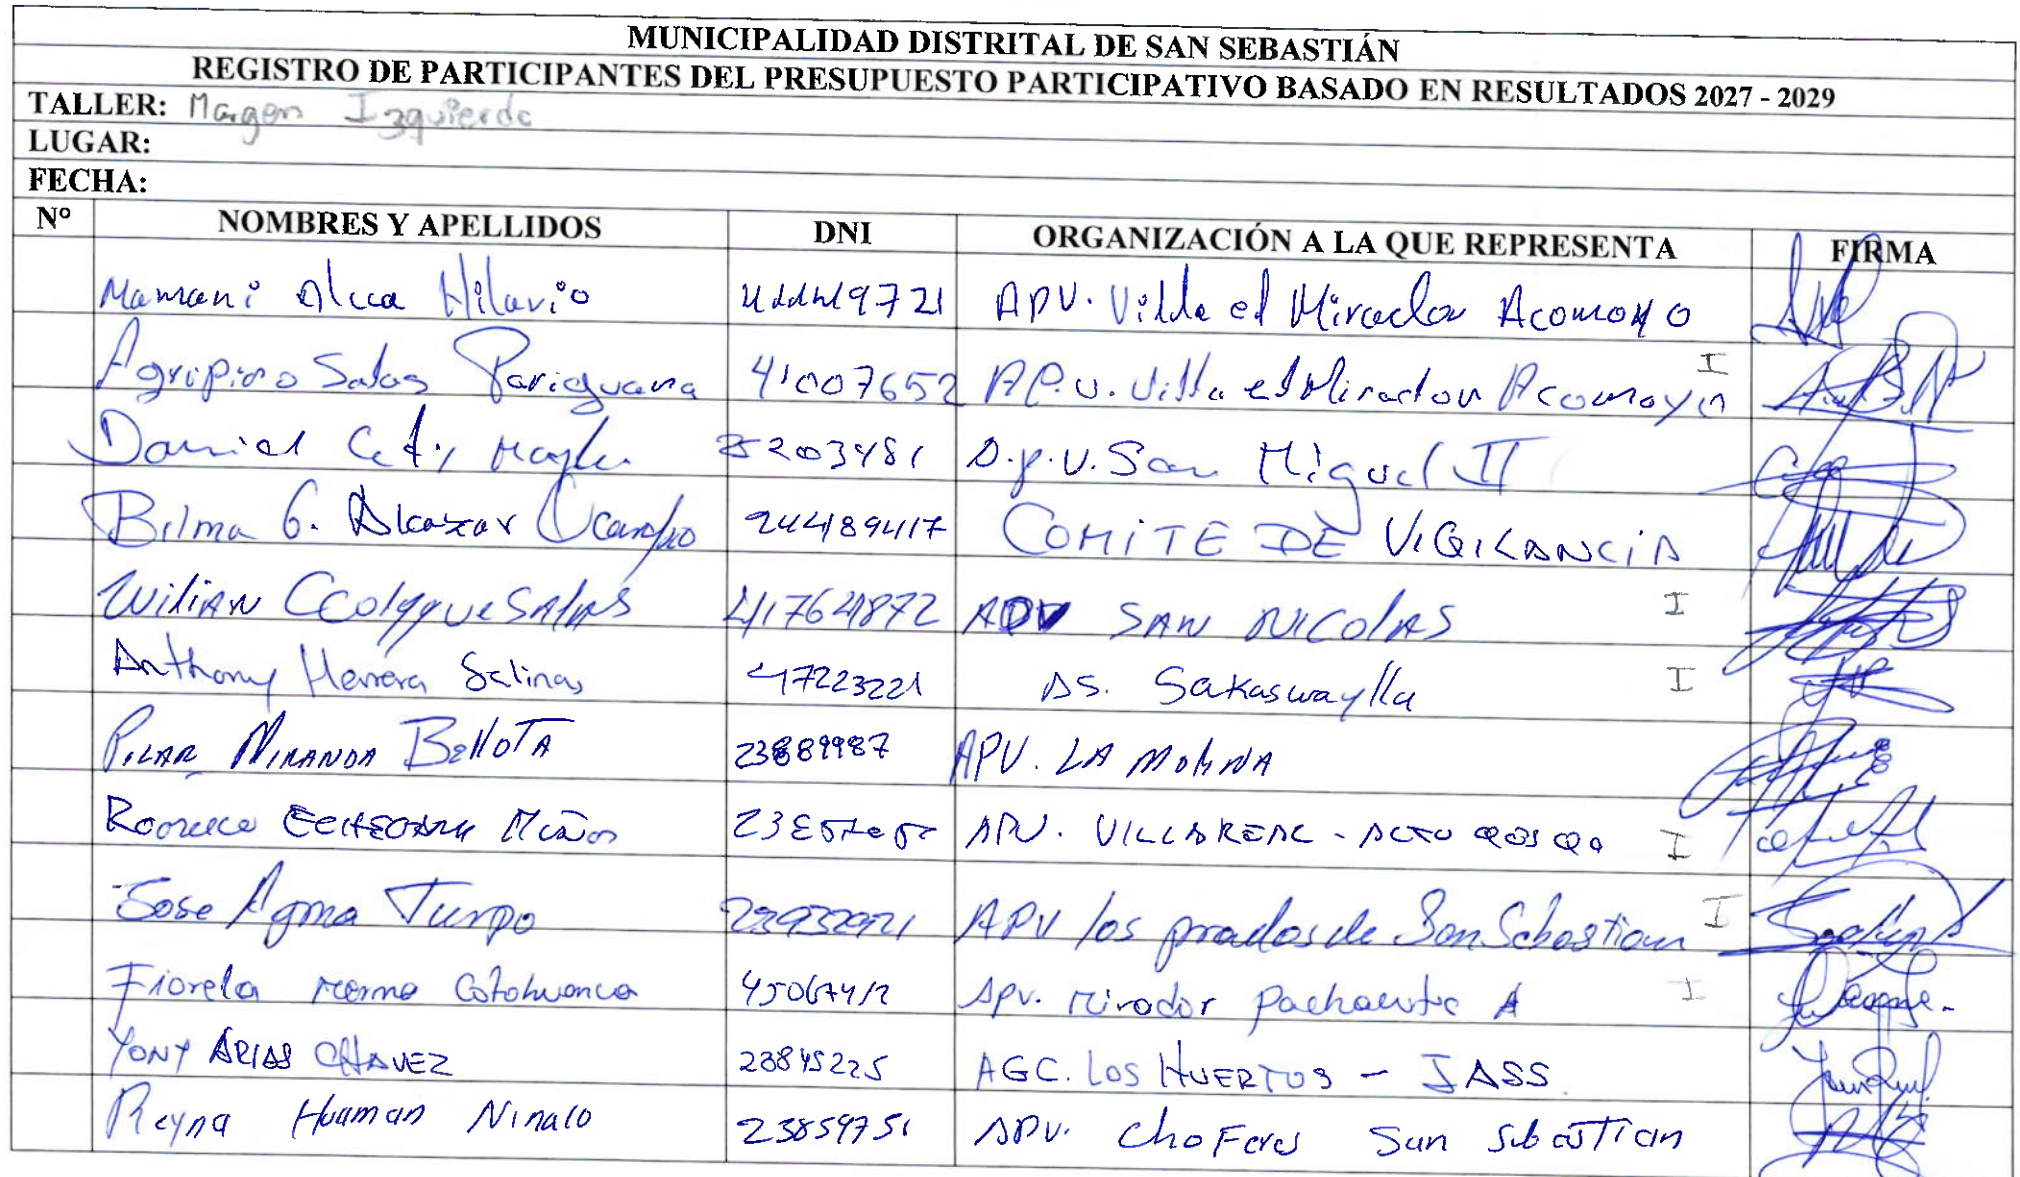 MUNICIPALIDAD DISTRITAL DE SAN SEBASTIÁN
REGISTRO DE PARTICIPANTES DEL PRESUPUESTO PARTICIPATIVO BASADO EN RESULTADOS 2027 - 2029
TALLER: Margen Izquierda
LUGAR:
FECHA:
Nº NOMBRES Y APELLIDOS DNI ORGANIZACIÓN A LA QUE REPRESENTA FIRMA
Mamani Alcca Hilario APV. Villa el Mirador Acomoyo
Agripino Salas Pariguana 41007652 AP.V. Villa el Mirador Acomayo I
Daniel 25203481 A.p.V. San Miguel II
Bilma G. Alcazar Ocampo COMITE DE VIGILANCIA
Wilian Ccolqque Salas 41764872 APV SAN NICOLAS I
Anthony Herrera Salinas 47223221 AS. Sakaswaylla I
PILAR MIRANDA BELLOTA 23889987 APV. LA MOLINA
APV. VILLAREAL - ALTO QOSQO I
Jose Agma Turpo APV los prados de San Sebastian I
Fiorela Merma Cotohuanca Apv. Mirador Pachacutec A I
YONY ARIAS CHAVEZ 23845225 AGC. LOS HUERTOS - JASS.
Reyna Huaman Ninalo 23859751 APV. Choferes San Sebastian